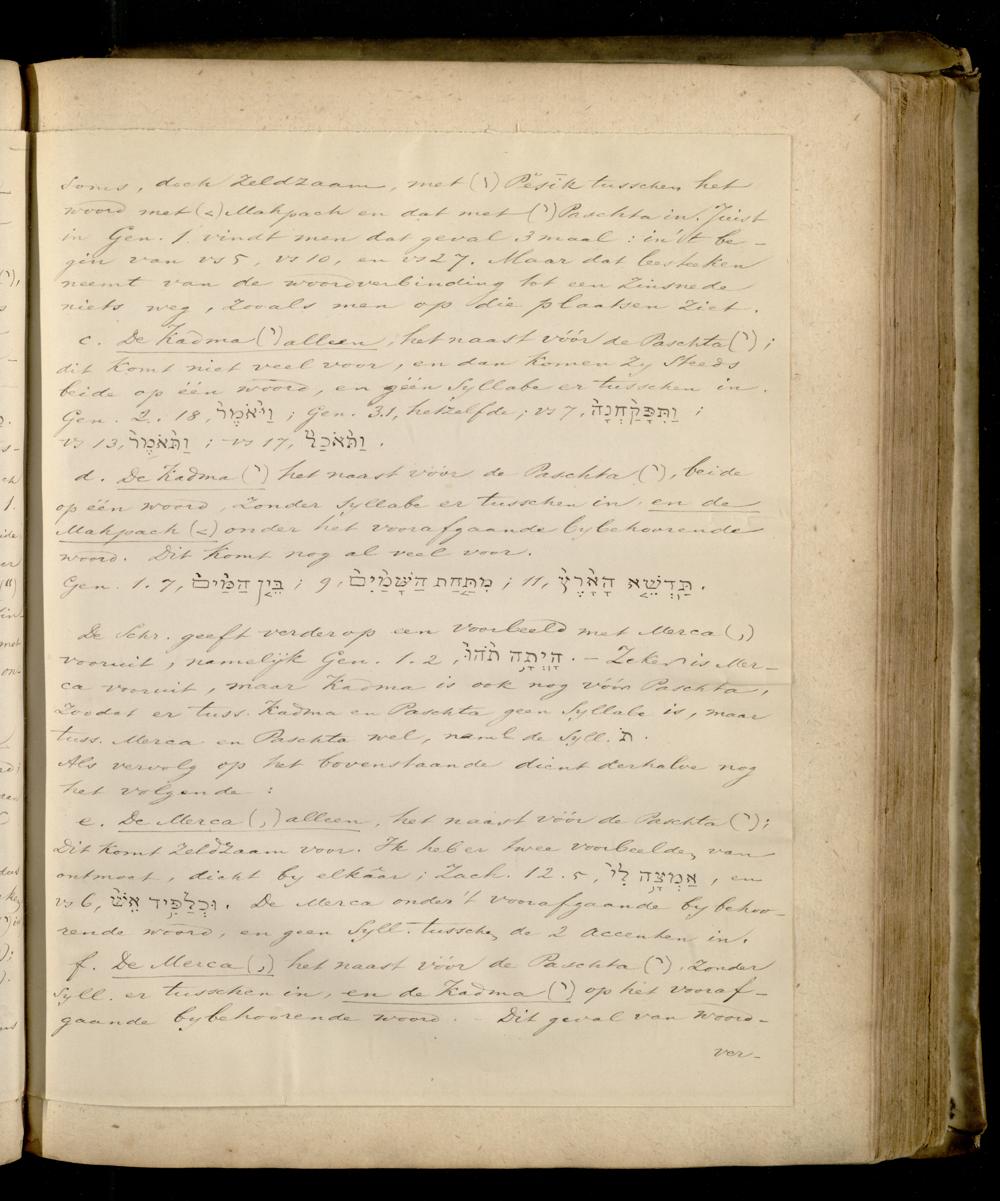 Soms, doch zeldzaam, met (׀) Pĕsīk tusschen het
woord met (֤) Mahpach en dat met (֙) Paschta in. Juist
in Gen. 1 vindt men dat geval 3 maal: in 't be-
gin van vs 5, vs 10, en vs 27. Maar dat leesteeken
neemt van de woordverbinding tot een Zinsnede
niets weg, zooals men op die plaatsen ziet.
c. De Kadma (֨) alleen, het naast vóór de Paschta (֙);
dit komt niet veel voor, en dan komen zy steeds
beide op één woord, en géén Syllabe er tusschen in.
Gen. 2. 18, וַיֹּ֨אמֶר֙ ; Gen. 3.1, hetzelfde; vs 7, וַתִּפָּקַ֨חְנָה֙ ;
vs 13, וַתֹּ֨אמֶר֙ ; vs 17, וַתֹּ֨אכַל֙ .
d. De Kadma (֨) het naast vóór de Paschta (֙), beide
op één woord, zonder Syllabe er tusschen in, en de
Mahpach (֤) onder het voorafgaande bybehoorende
woord. Dit komt nog al veel voor.
Gen. 1. 7, בֵּ֤ין הַמַּ֨יִם֙ ; 9, מִתַּ֤חַת הַשָּׁמַ֨יִם֙ ; 11, תַּֽדְשֵׁ֤א הָאָ֨רֶץ֙ .
De Schr. geeft verderop een voorbeeld met Merca (֥)
vooruit, namelijk Gen. 1. 2, הָיְתָ֥ה תֹ֨הוּ֙ . – Zeker is Mer-
ca vooruit, maar Kadma is ook nog vóór Paschta,
zoodat er tuss. Kadma en Paschta geen Syllabe is, maar
tuss. Merca en Paschta wel, naml. de Syll. תֹ .
Als vervolg op het bovenstaande dient derhalve nog
het volgende :
e. De Merca (֥) alleen, het naast vóór de Paschta (֙);
Dit komt zeldzaam voor. Ik heb er twee voorbeelden van
ontmoet, dicht by elkâar; Zach. 12. 5, אַמְצָ֥ה לִי֙ , en
vs 6, וּכְלַפִּ֥יד אֵשׁ֙ . De Merca onder 't voorafgaande bybehoo-
rende woord, en geen Syll. tusschen de 2 accenten in.
f. De Merca (֥) het naast vóór de Paschta (֙), zonder
Syll. er tusschen in, en de Kadma (֨) op het vooraf-
gaande bybehoorende woord. – Dit geval van woord-
ver-